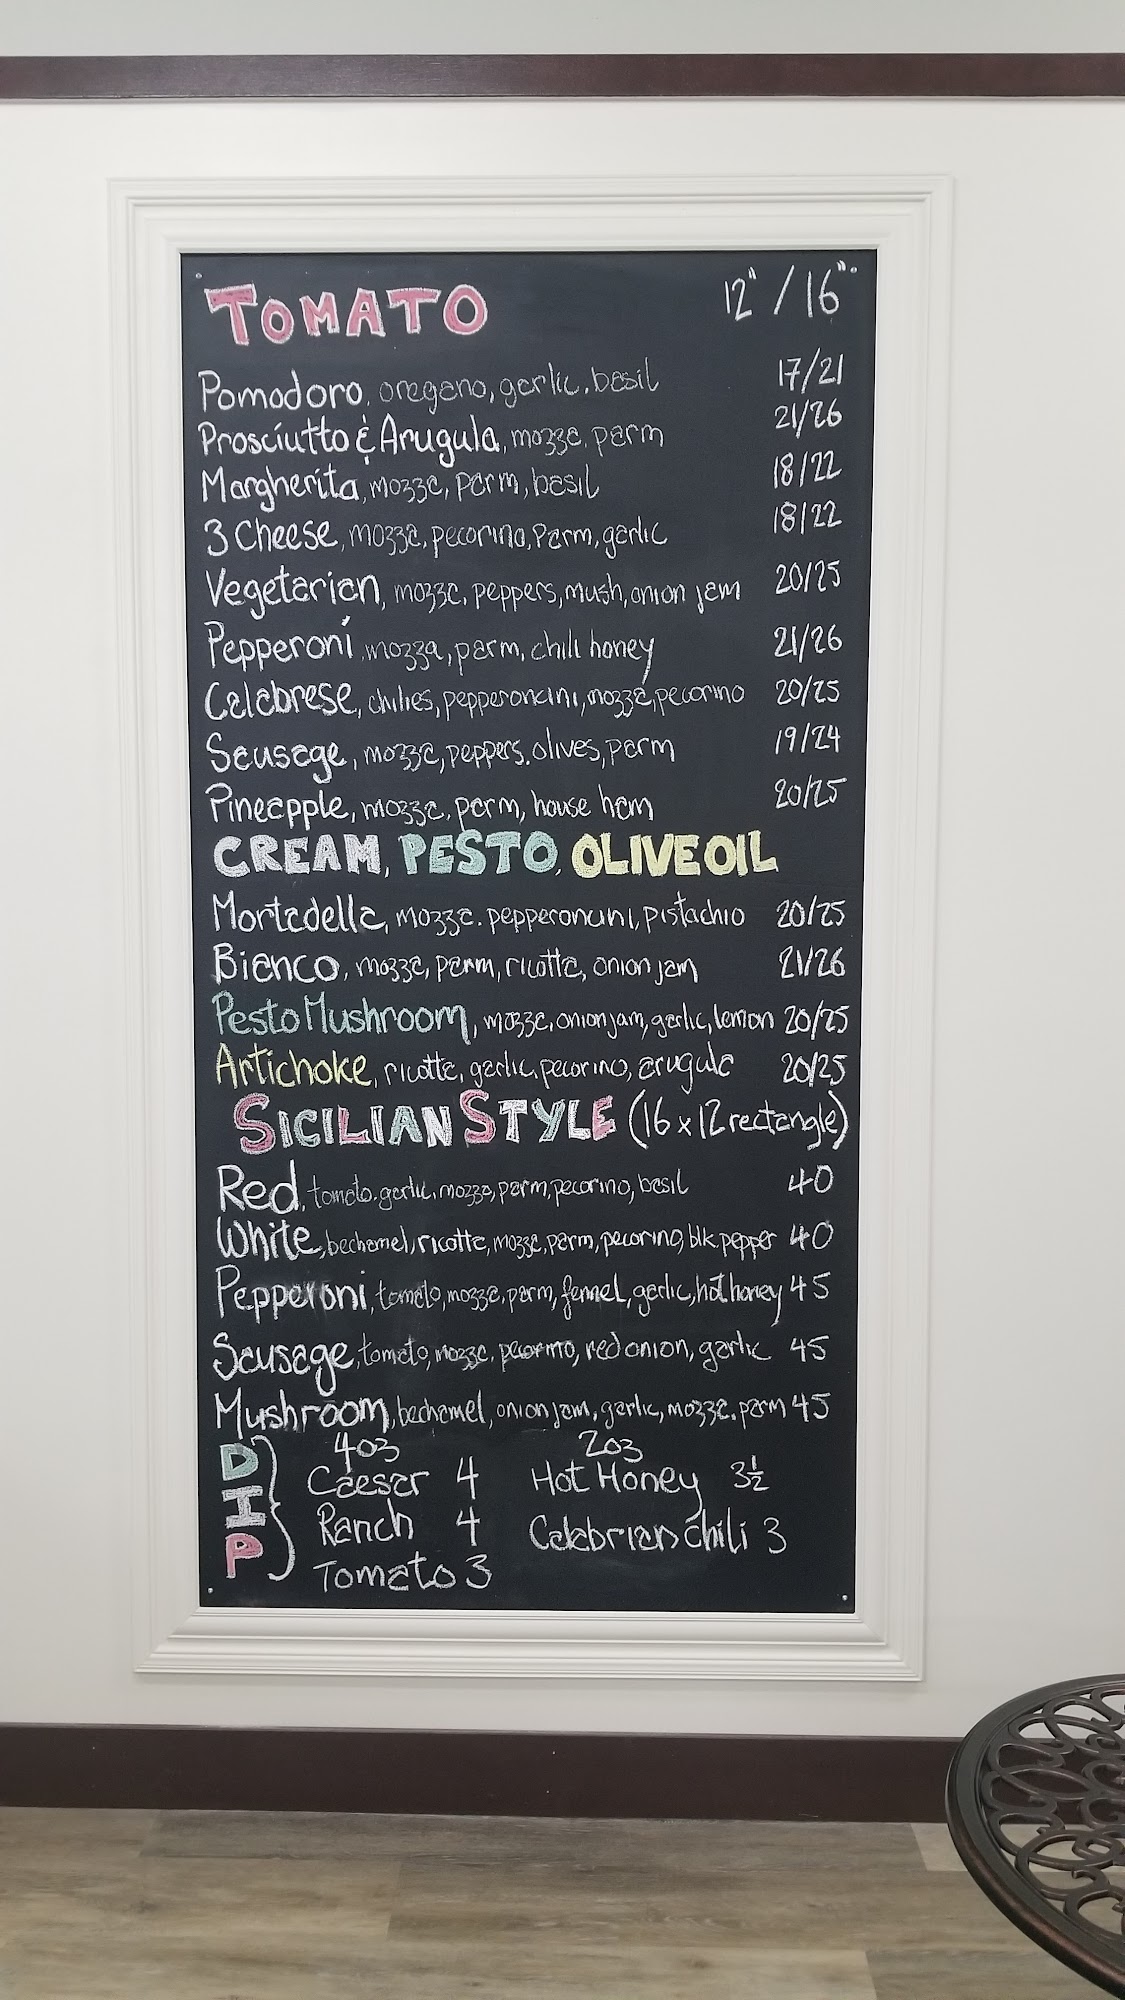 TOMATO 12" / 16"
Pomodoro, oregano, garlic, basil 17/21
Prosciutto & Arugula, mozza, parm 21/26
Margherita, mozza, parm, basil 18/22
3 Cheese, mozza, pecorino, Parm, garlic 18/22
Vegetarian, mozza, peppers, mush, onion jam 20/25
Pepperoni, mozza, parm, chili honey 21/26
Calabrese, chilies, pepperoncini, mozza, pecorino 20/25
Sausage, mozza, peppers, olives, parm 19/24
Pineapple, mozza, parm, house ham 20/25
CREAM, PESTO, OLIVE OIL
Mortadella, mozza, pepperoncini, pistachio 20/25
Bianco, mozza, parm, ricotta, onion jam 21/26
Pesto Mushroom, mozza, onion jam, garlic, lemon 20/25
Artichoke, ricotta, garlic, pecorino, arugula 20/25
SICILIAN STYLE (16 x 12 rectangle)
Red, tomato, garlic, mozza, parm, pecorino, basil 40
White, bechamel, ricotta, mozza, parm, pecorino, blk pepper 40
Pepperoni, tomato, mozza, parm, fennel, garlic, hot honey 45
Sausage, tomato, mozza, pecorino, red onion, garlic 45
Mushroom, bechamel, onion jam, garlic, mozza, parm 45
DIP
4oz
Caesar 4
Ranch 4
Tomato 3
2oz
Hot Honey 3½
Calabrian chili 3